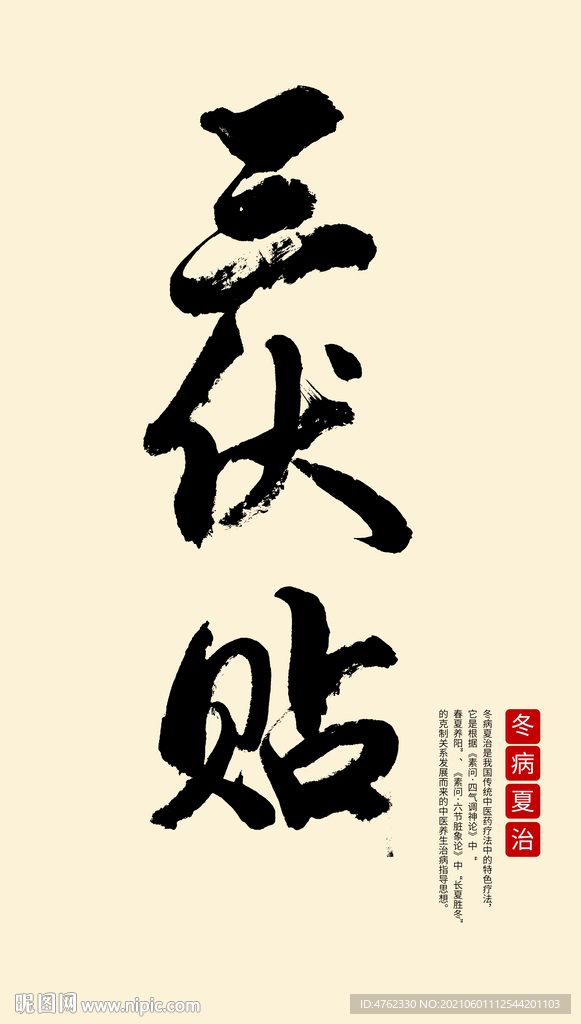 三伏贴
冬病夏治
冬病夏治是我国传统中医药疗法中的特色疗法，
它是根据《素问·四气调神论》中“
春夏养阳”、《素问·六节脏象论》中“长夏胜冬”
的克制关系发展而来的中医养生治病指导思想。
昵图网 www.nipic.com
ID:4762330 NO:20210601112544201103